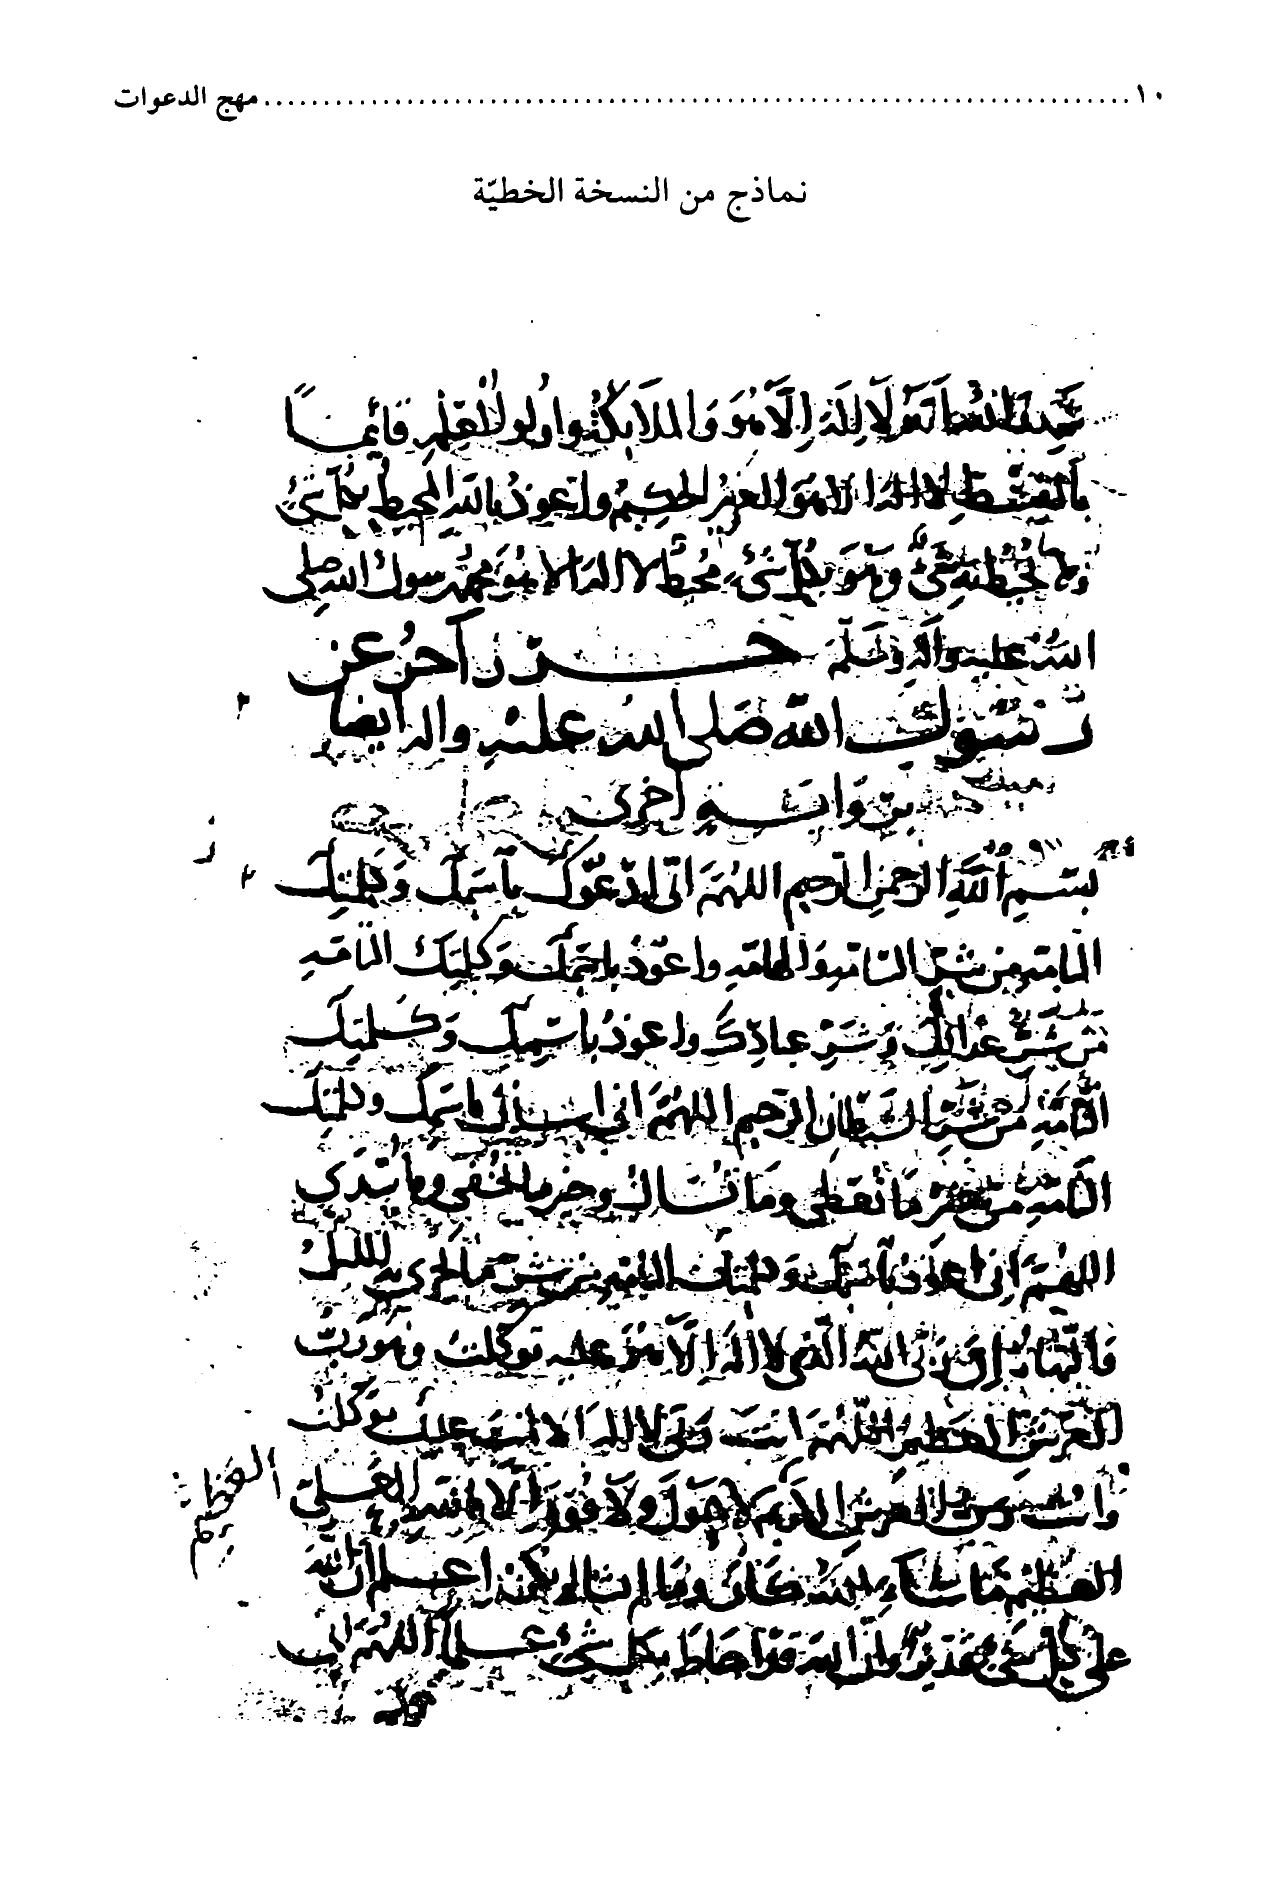 ١٠ .......... مهج الدعوات
نماذج من النسخة الخطيّة
شهد الله انه لا اله الا هو والملائكة واولوا العلم قائما
بالقسط لا اله الا هو العزيز الحكيم واعوذ بالله المحيط بكل شئ
ولا يحيط به شئ وهو بكل شئ محيط لا اله الا هو محمد رسول الله صلى
الله عليه وآله وسلم حرز آخر عن
رسول الله صلى الله عليه واله ايضا
من رواية اخرى
بسم الله الرحمن الرحيم اللهم اني ادعوك باسمك وكلمتك
التامة من شر السامة والهامة واعوذ باسمك وكلمتك التامة
من شر عذابك وشر عبادك واعوذ باسمك وكلمتك
التامة من شر الشيطان الرجيم اللهم اني اسألك باسمك وكلمتك
التامة من خير ما تعطي وما تسأل وخير ما تخفي وما تبدي
اللهم اني اعوذ باسمك وكلمتك التامة من شر ما يجري به الليل
والنهار ان ربي الله الذي لا اله الا هو عليه توكلت وهو رب
العرش العظيم اللهم انت ربي لا اله الا انت عليك توكلت
وانت رب العرش الكريم لا حول ولا قوة الا بالله العلي
العظيم
العظيم ما شاء الله كان وما لم يشأ لم يكن اعلم ان الله
على كل شئ قدير وان الله قد احاط بكل شئ علما اللهم اني